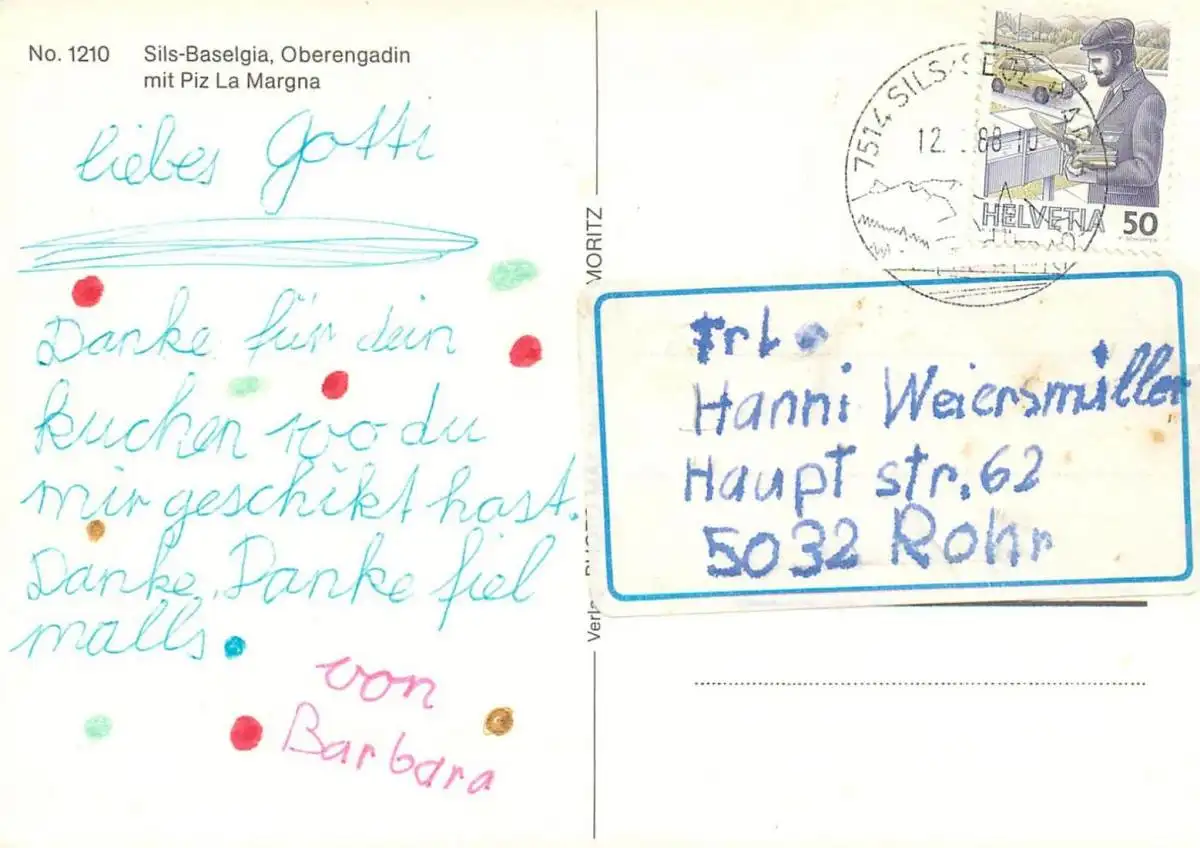 No. 1210 Sils-Baselgia, Oberengadin
mit Piz La Margna
liebes Gotti
Danke für dein
kuchen wo du
mir geschikt hast.
Danke, Danke fiel
malls.
von
Barbara
MORITZ
7514 SILS/SEGL
12. 88 10
HELVETIA 50
Frl.
Hanni Weiersmüller
Haupt str. 62
5032 Rohr